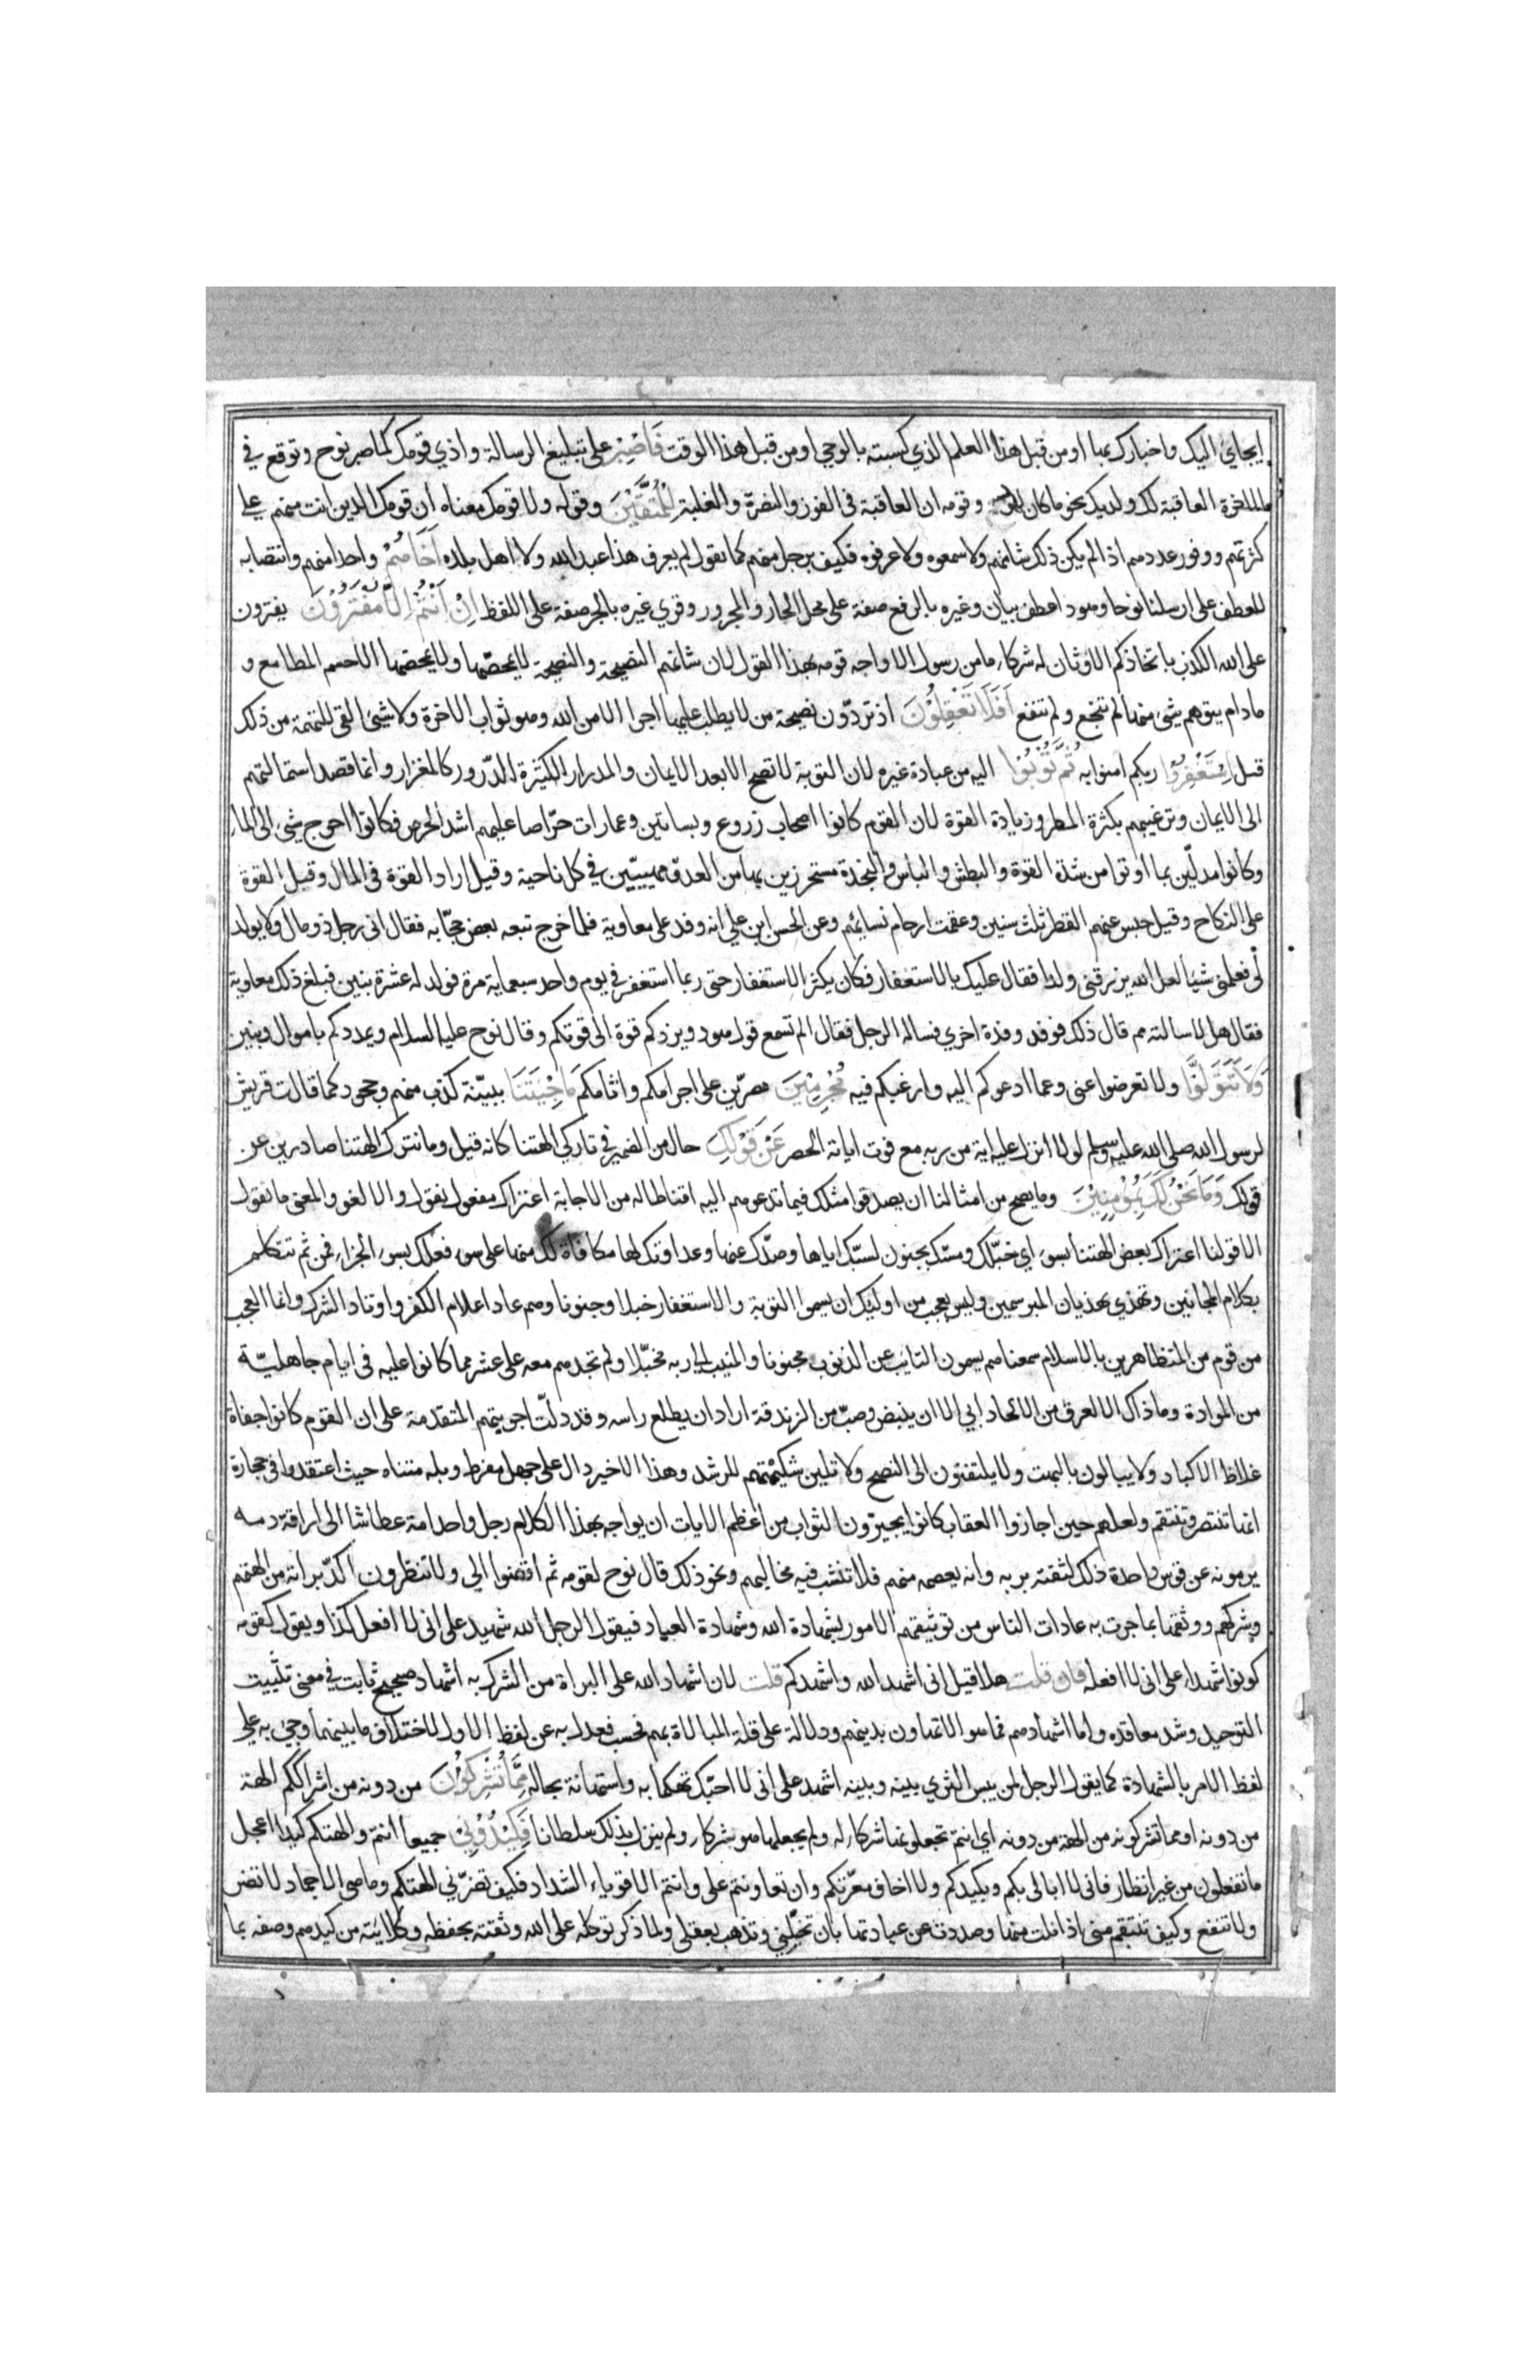 ايحاي اليك واخبارك بها او من قبل هذا العلم الذي كسبته بالوحي او من قبل هذا الوقت فَاصْبِرْ على تبليغ الرسالة واذي قومك كما صبر نوح وتوقع في
العاقبة لك ولمن يكذبك نحو ما كان لنوح وقومه ان العاقبة فى الفوز والنصرة والغلبة لِلْمُتَّقِيْنَ وقوله ولا قومك معناه أن قومك الذين انت منهم على
كثرتهم ووفور عددهم اذا لم يكن ذلك شانهم ولا سمعوه ولا عرفوه فكيف برجل منهم كما تقول لم يعرف هذا عبد الله ولا اهل بلده اَخَاهُمْ واحدا منهم وانتصابه
للعطف على ارسلنا نوحا وهودا عطف بيان وغيره بالرفع صفة على محل الجار والمجرور وقري غيره بالجر صفة على اللفظ اِنْ اَنْتُمْ اِلَّا مُفْتَرُوْنَ يفترون
على الله الكذب باتخاذكم الاوثان له شركاء ما من رسول الا واجه قومه بهذا القول لان شانهم النصيحة والنصيحة لا يمحصها ولا يمحضها الا حسم المطامع و
مادام يتوهم شئ منها لم تنجع ولم تنفع اَفَلَا تَعْقِلُوْنَ اذ تردّون نصيحة من لا يطلب عليها اجرا الا من الله وهو ثواب الاخرة ولا شئ انفى للتهمة من ذلك
قيل اِسْتَغْفِرُوْا ربكم امنوا به ثُمَّ تُوْبُوْا اليه من عبادة غيره لان التوبة لا تصح الا بعد الايمان والمدرار الكثيرة الدّرور كالمغزار وانما قصد استمالتهم
الى الايمان وترغيبهم بكثرة المطر وزيادة القوة لان القوم كانوا اصحاب زروع وبساتين وعمارات حرّاصا عليهم اشد الحرص فكانوا احوج شئ الى الماء
وكانوا مدلّين بما اوتوا من شدة القوة والبطش والباس والنجدة مستحرزين بها من العدوّ مهيبين في كل ناحية وقيل اراد القوة فى المال وقيل القوة
على النكاح وقيل حبس عنهم القطر ثلث سنين وعقمت ارحام نسائهم وعن الحسن ابن علي انه وفد على معاوية فلما خرج تبعه بعض حجّابه فقال انى رجل ذو مال ولا يولد
لي فعلمنى شيأ لعل الله يرزقنى ولدا فقال عليك بالاستغفار فكان يكثر الاستغفار حتى ربما استغفر في يوم واحد سبعماية مرة فولد له عشرة بنين فبلغ ذلك معاوية
فقال هلا سالته مم قال ذلك فوفد وفدة اخري فساله الرجل فقال الم تسمع قول هود ويزدكم قوة الى قوتكم وقال نوح عليه السلام ويمددكم باموال وبنين
وَلَا تَتَوَلَّوْا ولا تعرضوا عنى وعما ادعوكم اليه وارغبكم فيه مُجْرِمِيْنَ مصرّين على اجرامكم واثامكم مَاجِئْتَنَا ببيّنة كذب منهم وجحود كما قالت قريش
لرسول الله صلى الله عليه وسلم لولا انزل عليه اية من ربه مع فوت اياته الحصر عَنْ قَوْلِكَ حال من الضمير في تاركي الهتنا كانه قيل وما نترك الهتنا صادرين عن
قولك وَمَا نَحْنُ لَكَ بِمُؤْمِنِيْنَ وما يصح من امثالنا ان يصدقوا مثلك فيما تدعوهم اليه اقناطا له من الاجابة اعتراك مفعول نقول والا لغو والمعنى ما نقول
الا قولنا اعتراك بعض الهتنا بسوء اي خبّلك ومسّك بجنون لسبّك اياها وصدّك عنها وعداوتك لها مكافاة لك منها على سوء فعلك بسوء الجزاء فمن ثم تتكلم
بكلام المجانين وتهذي بهذيان المبرسمين وليس بعجب من اولئك ان يسموا التوبة والاستغفار خبلا وجنونا وهم عاد اعلام الكفر واوتاد الشرك وانما العجب
من قوم من المتظاهرين بالاسلام سمعناهم يسمون التائب عن الذنوب مجنونا والمنيب الى ربه مخبّلا ولم نجدهم معه على عشر مما كانوا عليه فى ايام جاهليّة
من الموادة وما ذاك الا لعرق من الالحاد ابي الا ان ينبض وضبّ من الزندقة اراد ان يطلع راسه وقد دلّت اجوبتهم المتقدمة على ان القوم كانوا جفاة
غلاظ الاكباد ولا يبالون بالبهت ولا يلتفتون الى النصح ولا تلين شكيمتهم للرشد وهذا الاخير دال على جهل مفرط وبله متناه حيث اعتقدوا في حجارة
انها تنتصر وتنتقم ولعلهم حين اجازوا العقاب كانوا يجيزون الثواب من اعظم الايات ان يواجه بهذا الكلام رجل واحد امة عطاشا الى اراقة دمه
يرمونه عن قوس واحدة ذلك لثقته بربه وانه يعصمه منهم فلا تنشب فيه مخاليبهم ونحو ذلك قال نوح لقومه ثم اقضوا الي ولا تنظرون اكّد براته من الهتهم
وشركهم ووثقها بما جرت به عادات الناس من توثيقهم الامور بشهادة الله وشهادة العباد فيقول الرجل الله شهيد على انى لا افعل كذا ويقول لقومه
كونوا شهداء على انى لا افعله فان قلت هلا قيل انى اشهد الله واشهدكم قلت لان اشهاد الله على البراة من الشرك به اشهاد صحيح ثابت في معنى تثبيت
التوحيد وشد معاقده واما اشهادهم فما هو الا تهاون بدينهم ودلالة على قلة المبالاة بهم فحسب فعدل به عن لفظ الاول لاختلاف ما بينهما وجئ به على
لفظ الامر بالشهادة كما يقول الرجل لمن يبس الثري بينه وبينه اشهد على انى لا احبّك تهكما به واستهانة بحاله مِمَّا تُشْرِكُوْنَ من دونه من اشراككم الهة
من دونه او مما تشركونه من الهة من دونه اي انتم تجعلونها شركاء له ولم يجعلها هو شركاء ولم ينزل بذلك سلطانا فَكِيْدُوْنِيْ جميعا انتم والهتكم كيدا اعجل
ما تفعلون من غير انظار فانى لا ابالى بكم وبكيدكم ولا اخاف معرّتكم وان تعاونتم على وانتم الاقوياء الشداد فكيف تضرّني الهتكم وما هى الا جماد لا تضر
ولا تنفع وكيف تنتقم منى اذا نلت منها وصددت عن عبادتها بان تخبّلني وتذهب بعقلى ولما ذكر توكله على الله وثقته بحفظه وكلايته من كيدهم وصفه بما